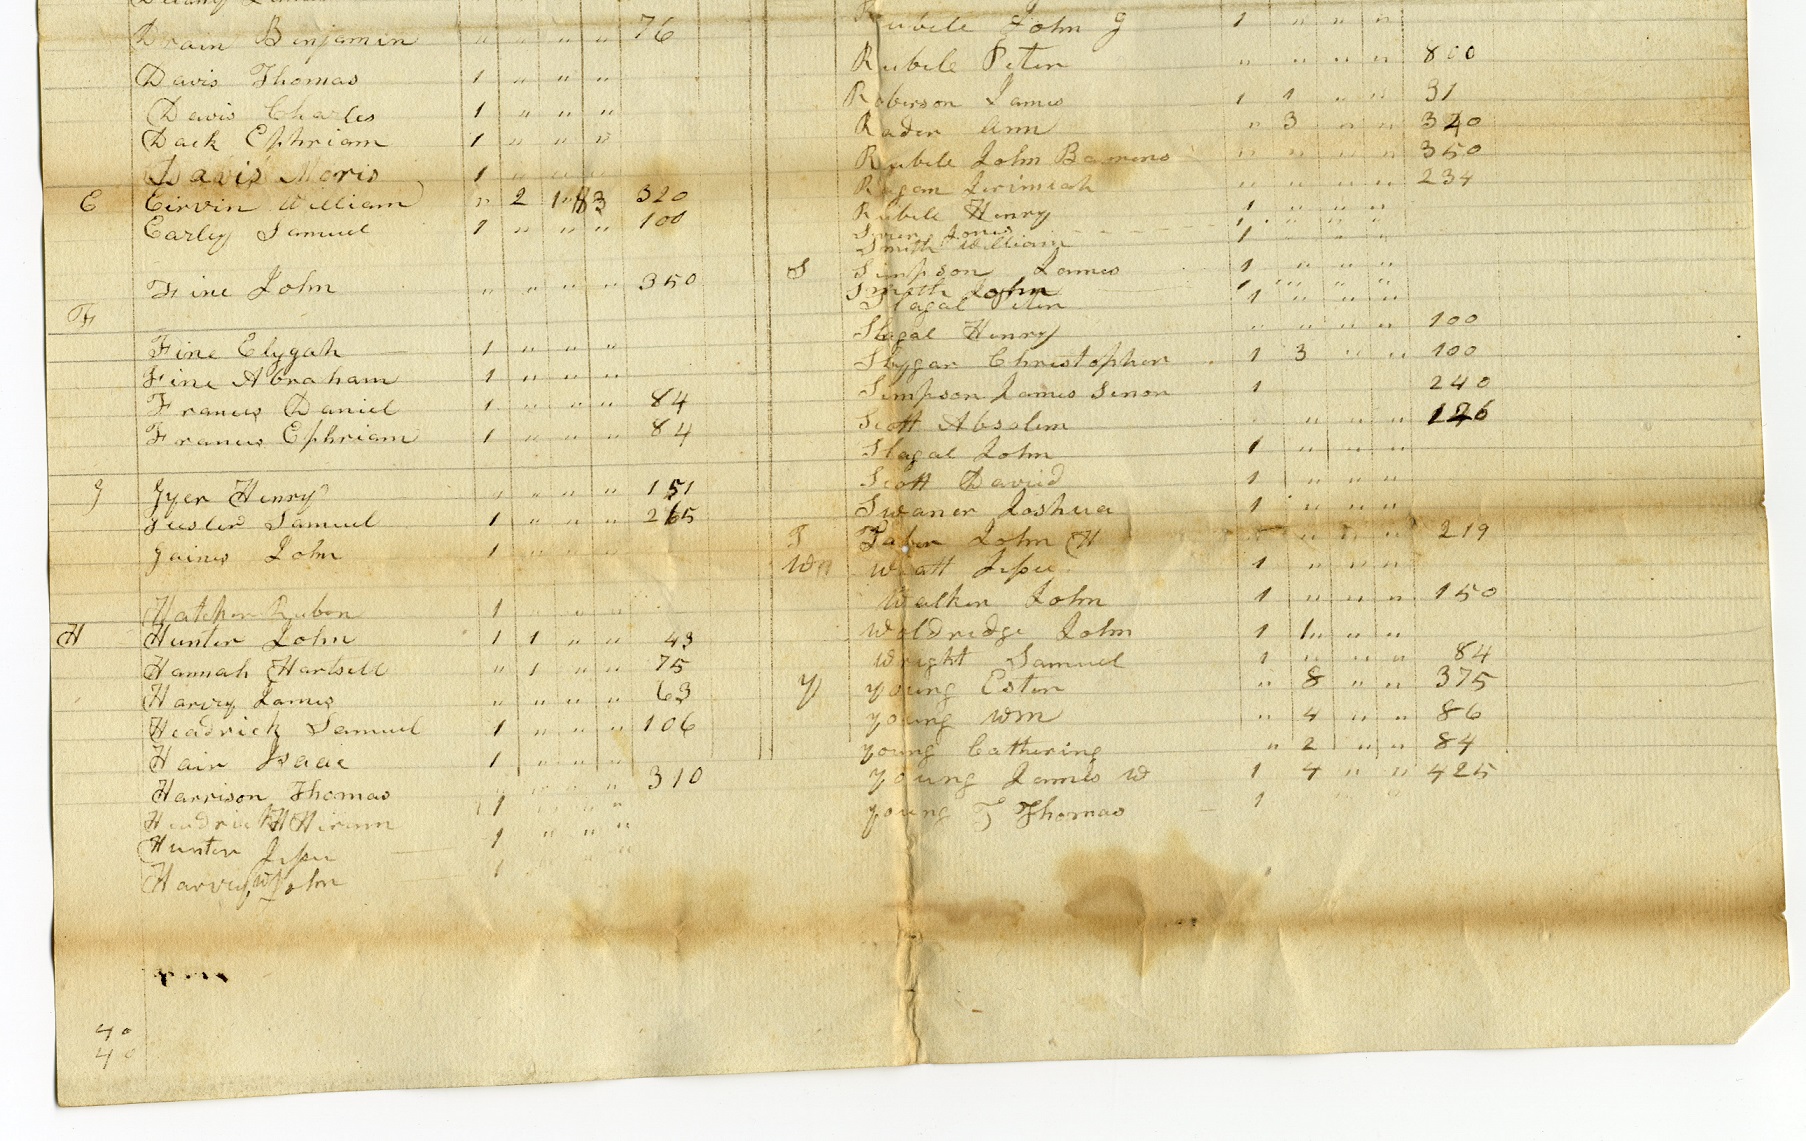 Drain Benjamin " " " " 76
Davis Thomas 1 " " "
Davis Charles 1 " " "
Dack Ephriam 1 " " "
Davis Moris 1 " " "
E Eirvin William " 2 320
Earley Samuel 1 " " " 100
Fine John " " " " 350
F
Fine Elygah 1 " " "
Fine Abraham 1 " " "
Francis Daniel 1 " " " 84
Francis Ephriam 1 " " " 84
G Gyer Henry " " " " 151
Samuel 1 " " " 265
Gaines John 1 " " "
Hatcher Ruben 1 " " "
H Hunter John 1 1 " " 43
Hannah Hartsell " 1 " " 75
Harvy James " " " " 63
Headrick Samuel 1 " " " 106
Hair Isaac 1 " " "
Harrison Thomas " " " " 310
Hiram 1 " " "
Hunter Jesse 1 " " "
Harvey W John 1
40
40
Rubele John G 1 " " "
Rubele Peter " " " " 800
Roberson James 1 1 " " 31
Rader Ann " 3 " " 320
Rubele John " " " " 350
Ragan Jerimiah " " " " 234
Rubele Henry 1 " " "
Jones 1 " " "
Smith William 1 " "
S Simpson James 1 " " "
Smith John 1 " " "
Slagal Peter 1 " " "
Slagal Henry " " " " 100
Slygar Christopher 1 3 " " 100
Simpson James Senor 1 240
Scott Absolem " " " " 126
Slagal John 1 " " "
Scott David 1 " " "
Swaner Joshua 1 " " "
T Taber John H " " " " 219
W Wiatt Jesse 1 " " "
Walker John 1 " " " 150
Woldredge John 1 1 " " "
Wright Samuel 1 " " " 84
Y Young Ester " 8 " " 375
Young Wm " 4 " " 86
Young Cathering " 2 " " 84
Young James W 1 4 " " 425
Young T Thomas 1 " "